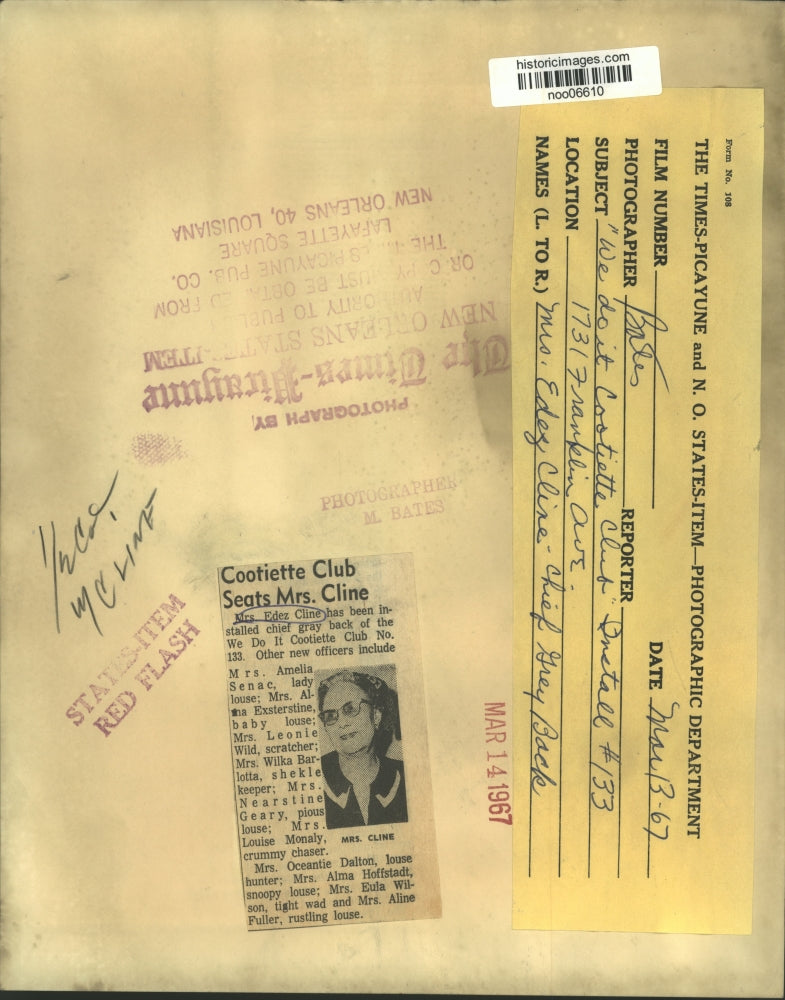 historicimages.com
noo06610
Form No. 108
THE TIMES-PICAYUNE and N. O. STATES-ITEM—PHOTOGRAPHIC DEPARTMENT
FILM NUMBER DATE Mar 13-67
PHOTOGRAPHER Bates REPORTER
SUBJECT "We do it Cootiette Club" Install #133
LOCATION 1731 Franklin Ave.
NAMES (L. TO R.) Mrs. Edez Cline - Chief Grey Back
PHOTOGRAPH BY
The Times-Picayune
NEW ORLEANS STATES-ITEM
AUTHORITY TO PUBL
OR C PY UST BE OBTA ED FROM
THE T ES PICAYUNE PUB. CO.
LAFAYETTE SQUARE
NEW ORLEANS 40, LOUISIANA
PHOTOGRAPHER
M. BATES
1/2 Col.
M CLINE
STATES-ITEM
RED FLASH
MAR 14 1967
Cootiette Club
Seats Mrs. Cline
Mrs. Edez Cline has been in-
stalled chief gray back of the
We Do It Cootiette Club No.
133. Other new officers include
Mrs. Amelia
Senac, lady
louse; Mrs. Al-
ma Exsterstine,
baby louse;
Mrs. Leonie
Wild, scratcher;
Mrs. Wilka Bar-
lotta, shekle
keeper; Mrs.
Nearstine
Geary, pious
louse; Mrs.
Louise Monaly,
crummy chaser.
MRS. CLINE
Mrs. Oceantie Dalton, louse
hunter; Mrs. Alma Hoffstadt,
snoopy louse; Mrs. Eula Wil-
son, tight wad and Mrs. Aline
Fuller, rustling louse.